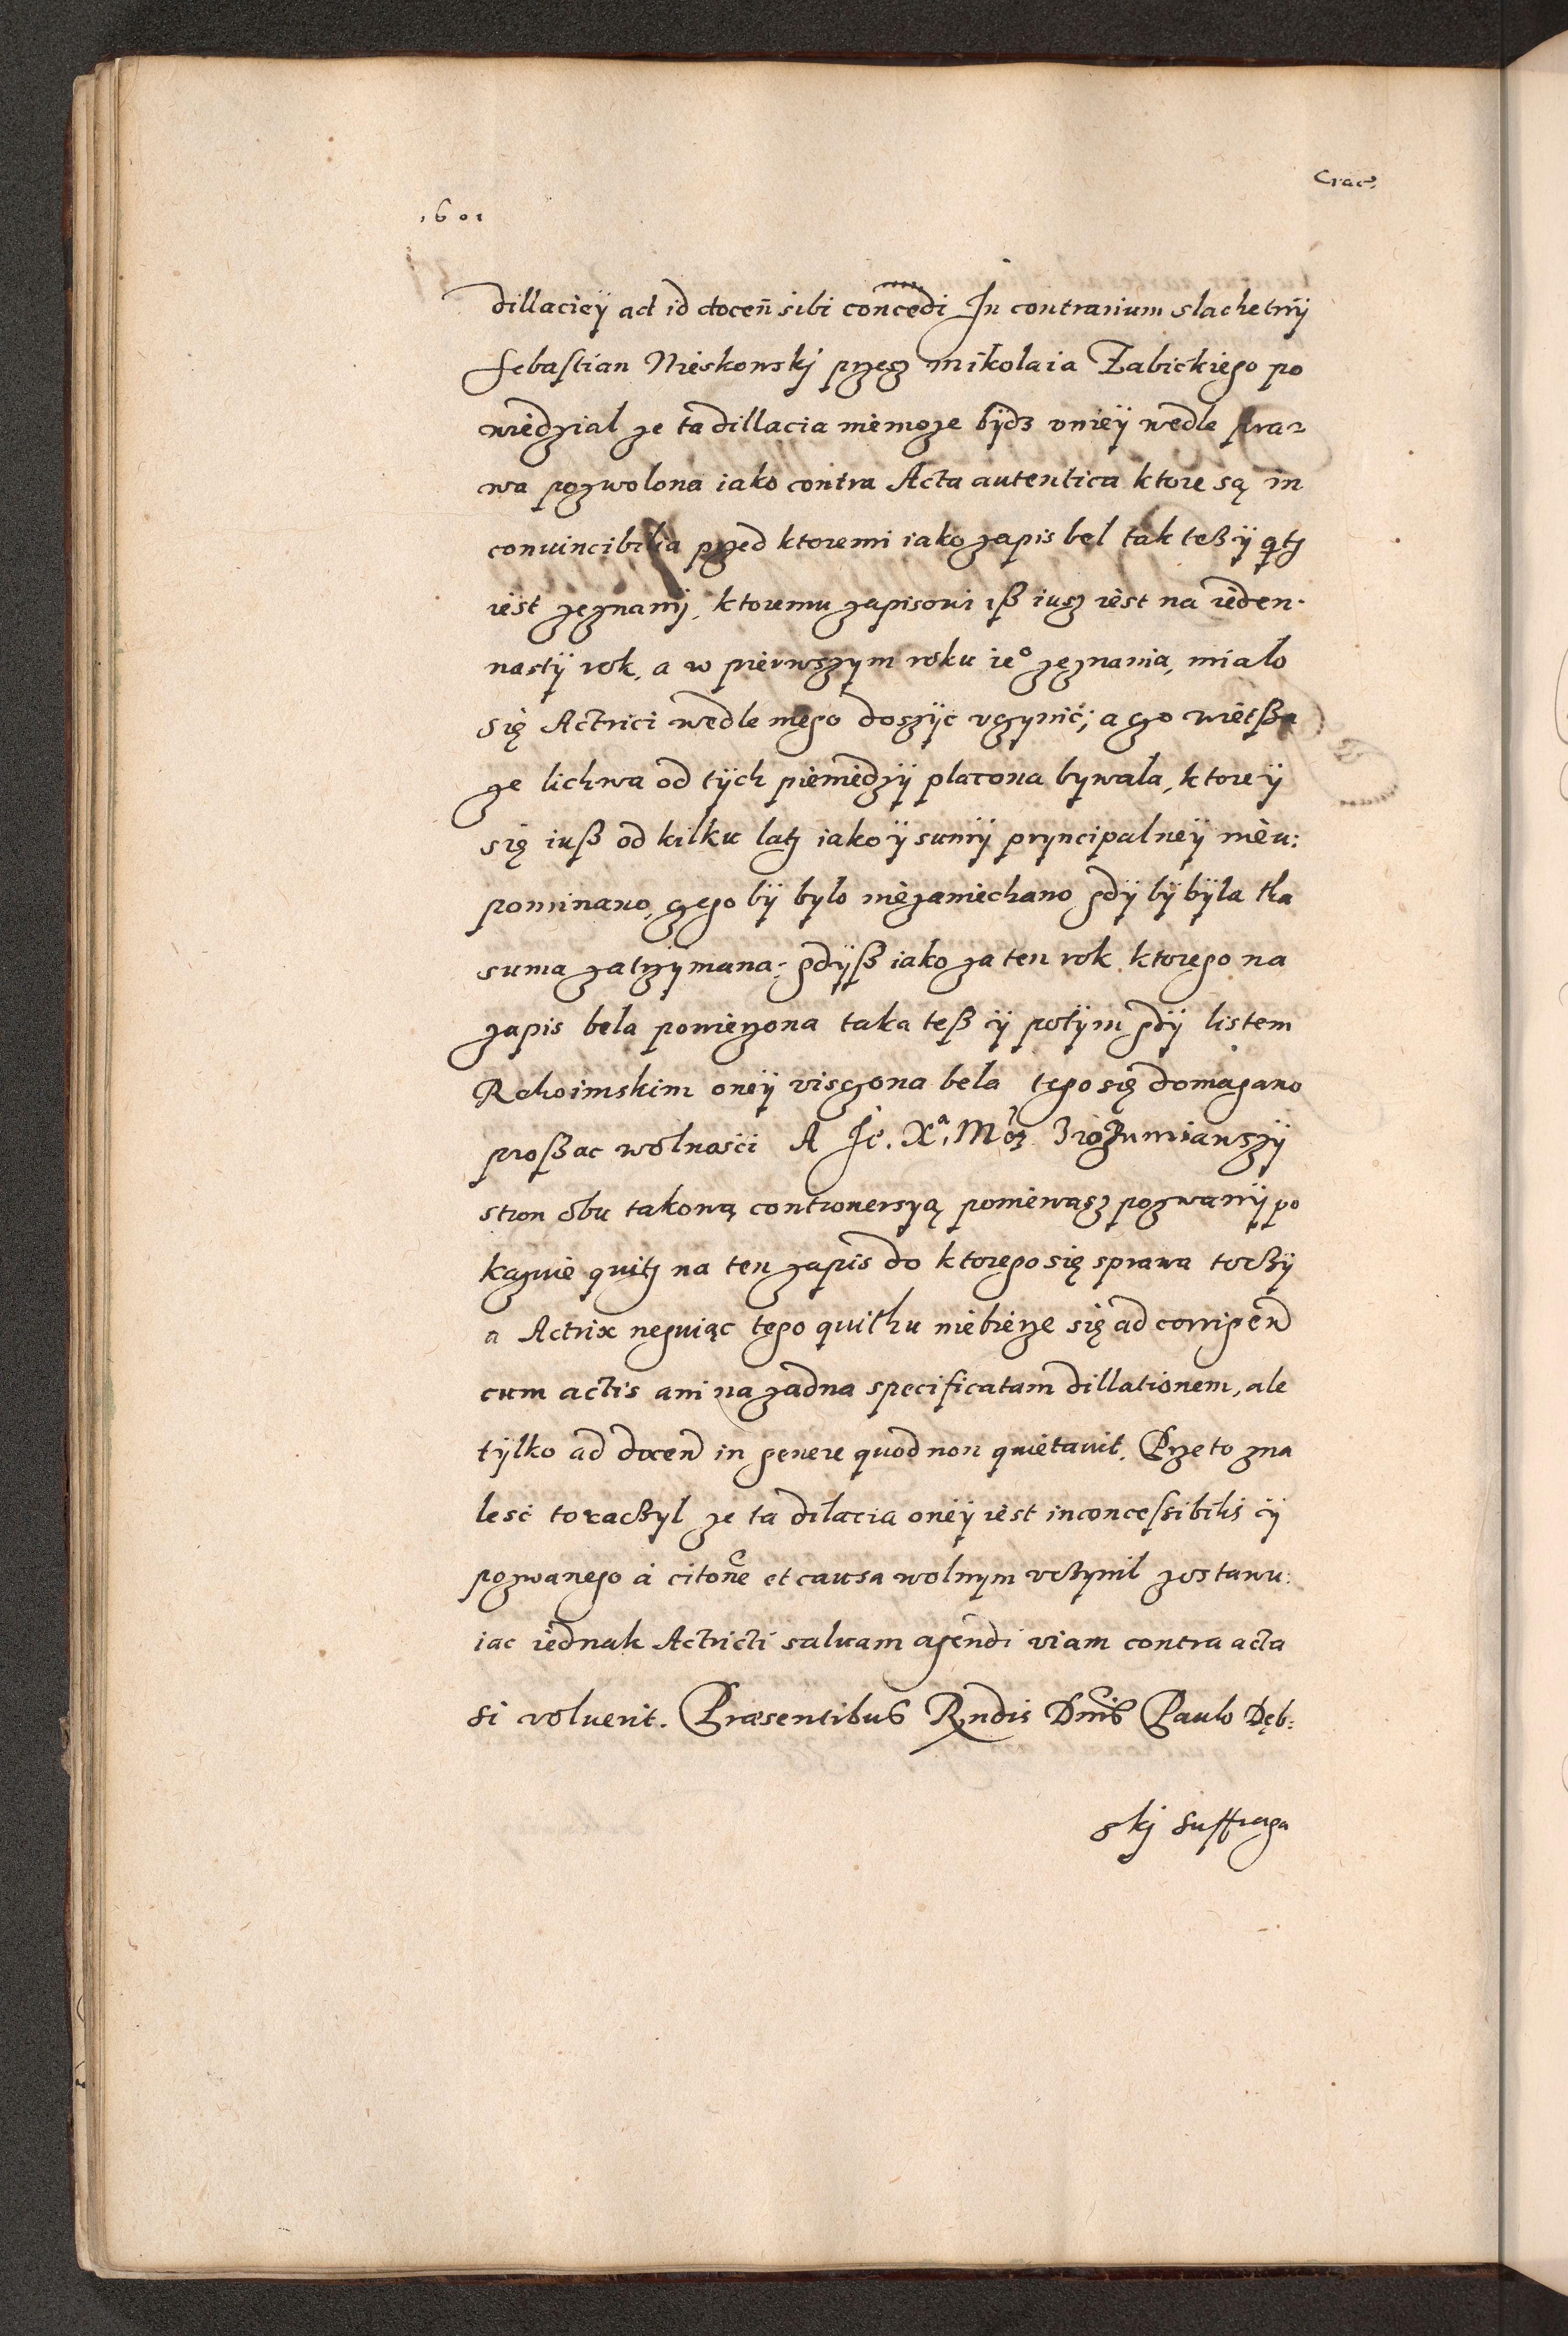 Crac:
1601
dillaciey ad id docen̄ sibi concedi In contrarium slachetny
Sebastian Nieskowskj przesz mikolaia Żabickiego po
wiedzial ze ta dillacia niemoze bydz oniey wedle pra-
wa pozwolona iako contra Acta autentica ktore są in
conuincibilia przed ktoremi iako zapis bel tak tesz y qtz
iest zeznany, ktoremu zapisowi isz iusz iest na ieden-
nasty rok, a w pierwszym roku ie° zeznania, mialo
się Actrici wedle niego doszyc vczynić; a czo wietsza
ze lichwa od tych pieniedzy placona bywala, ktorey
się iusz od kilku latz iako y sumy pryncipalney nieu:
pominano, czego by bylo niezaniechano gdy by byla tka
suma zatrzymana; gdysz iako za ten rok ktorego na
zapis bela powierzona taka tesz y potym gdy listem
Rchoimskim oney visczona bela tego się domagano
proszac wolnosci A Je. Xa. Mcz zrozumiawszy
stron obu takową controuersyą poniewasz pozwany po
kazuie quitz na ten zapis do ktorego się sprawa toczy
a Actrix neguiąc tego quithu niebierze się ad corrigen̄
cum actis ani na zadna specificatam dillationem, ale
tylko ad docen̄ in genere quod non quietauit. Przeto zna
lesć to raczyl ze ta dilacia oney iest inconcessibilis y
pozwanego á citone et causa wolnym vczynil zostawu:
iac iednak Actricti saluam agendi viam contra acta
si voluerit. Præsentibus Rndis Dnis Paulo Dęb:
skj Suffraga